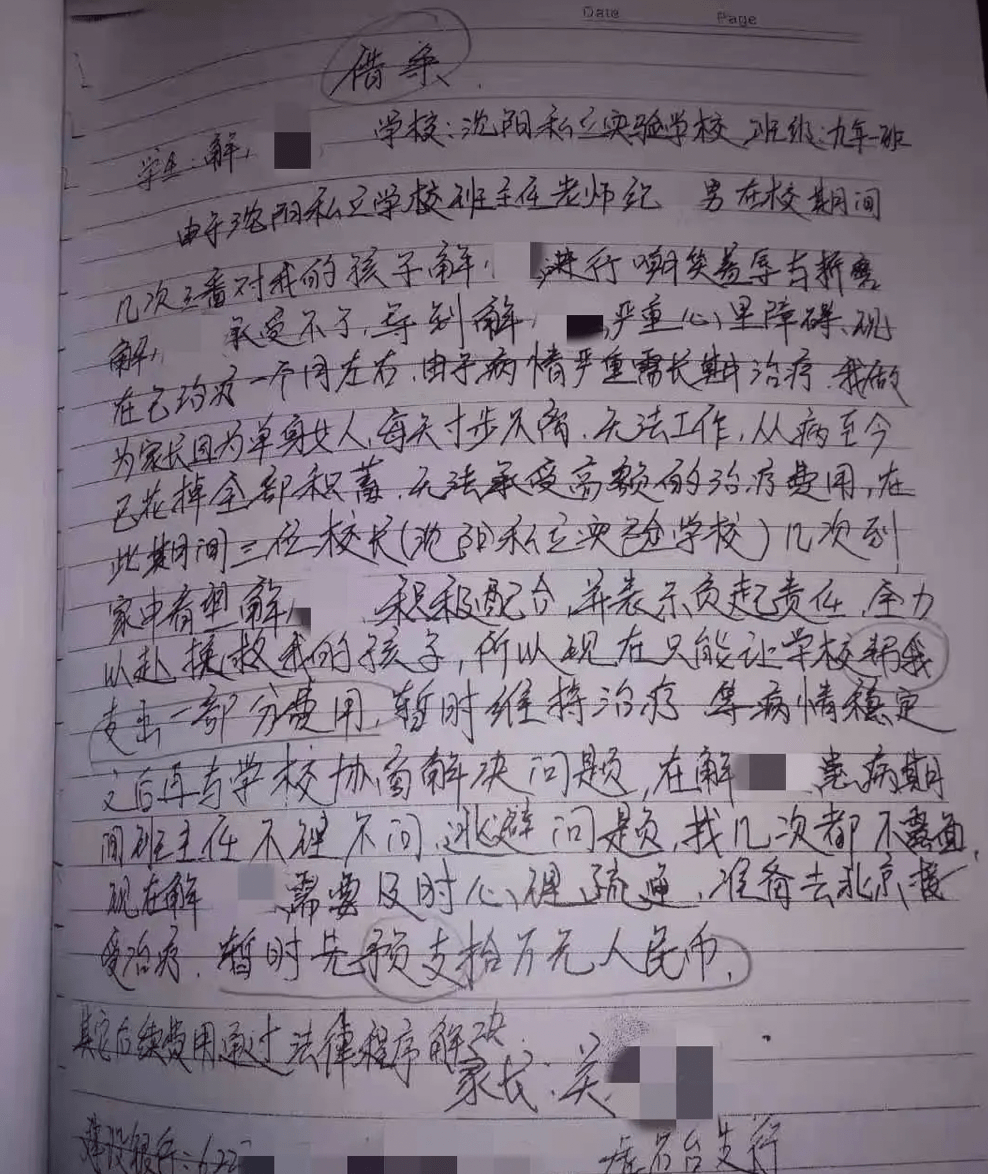 Date Page
借条
学生:解 学校:沈阳私立实验学校 班级:九年一班
由于沈阳私立学校班主任老师纪 男在校期间
几次三番对我的孩子解 进行嘲笑羞辱与折磨
解 承受不了,导到解 ,严重心里障碍、现
在已治疗一个月左右.由于病情严重需长期治疗.我做
为家长因为单身女人,每天寸步不离.无法工作,从病至今
已花掉全部积蓄.无法承受高额的治疗费用,在
此期间三位校长(沈阳私立实验学校)几次到
家中看望解 积极配合,并表示负起责任,全力
以赴 救我的孩子,所以现在只能让学校帮我
支出一部分费用,暂时维持治疗 等病情稳定
之后再与学校协商解决问题,在解 患病期
间班主任不理不问、逃避问题,找几次都不露面,
现在解 需要及时心理疏通,准备去北京接
受治疗.暂时先预支拾万元人民币,
其它后续费用通过法律程序解决.
家长:关
建设银行:622 台支行